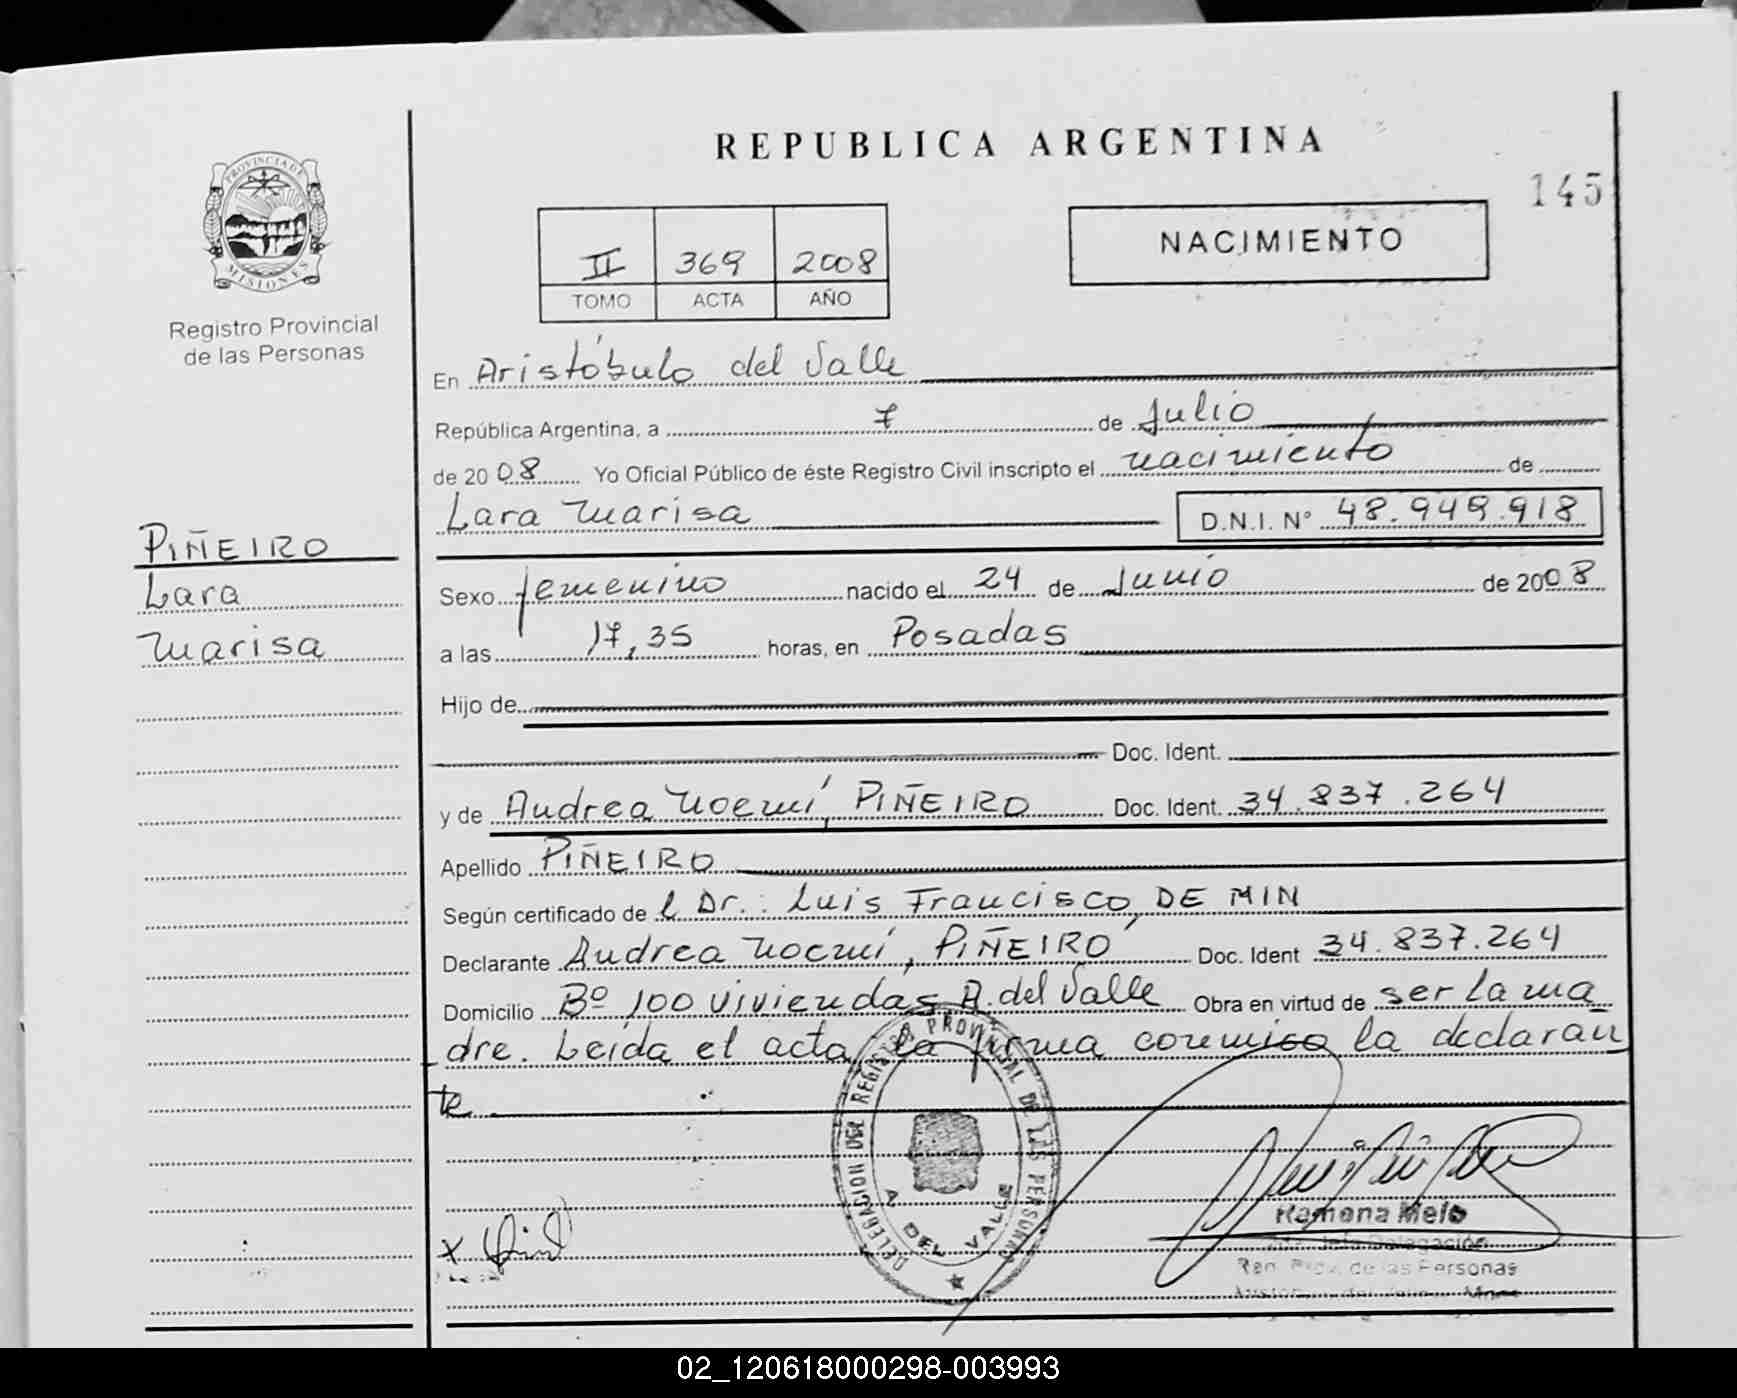 REPUBLICA ARGENTINA
145
PROVINCIA DE
MISIONES
Registro Provincial
de las Personas
II 369 2008
TOMO ACTA AÑO
NACIMIENTO
En Aristóbulo del Valle
República Argentina, a 7 de Julio
de 2008 Yo Oficial Público de éste Registro Civil inscripto el nacimiento de
Lara Marisa D.N.I. N° 48.949.918
PIÑEIRO
Lara
Marisa
Sexo femenino nacido el 24 de Junio de 2008
a las 17,35 horas, en Posadas
Hijo de
Doc. Ident.
y de Andrea Noemí, PIÑEIRO Doc. Ident. 34.837.264
Apellido PIÑEIRO
Según certificado de l Dr.: Luis Francisco, DE MIN
Declarante Andrea Noemí, PIÑEIRO Doc. Ident 34.837.264
Domicilio Bº 100 viviendas A. del Valle Obra en virtud de ser la ma
dre. Leída el acta, la firma conmigo la declaran
te
DELEGACION DEL REGISTRO PROVINCIAL DE LAS PERSONAS
A. DEL VALLE
x
Ramona Melo
Jefa Delegación
Reg. Prov. de las Personas
02_120618000298-003993